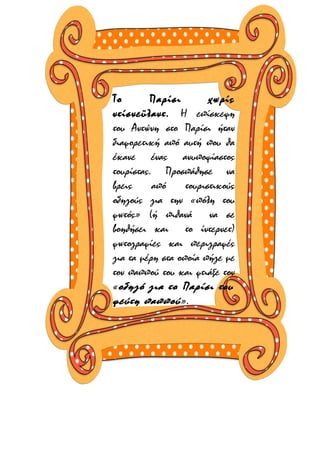 Το Παρίσι χωρίς
ντίσνεϋλαντ. Η επίσκεψη
του Αντώνη στο Παρίσι ήταν
διαφορετική από αυτή που θα
έκανε ένας ανυποψίαστος
τουρίστας. Προσπάθησε να
βρεις από τουριστικούς
οδηγούς για την «πόλη του
φωτός» (ή πιθανά να σε
βοηθήσει και το ίντερνετ)
φωτογραφίες και περιγραφές
για τα μέρη στα οποία πήγε με
τον παππού του και φτιάξε τον
«οδηγό για το Παρίσι του
ψεύτη παππού».